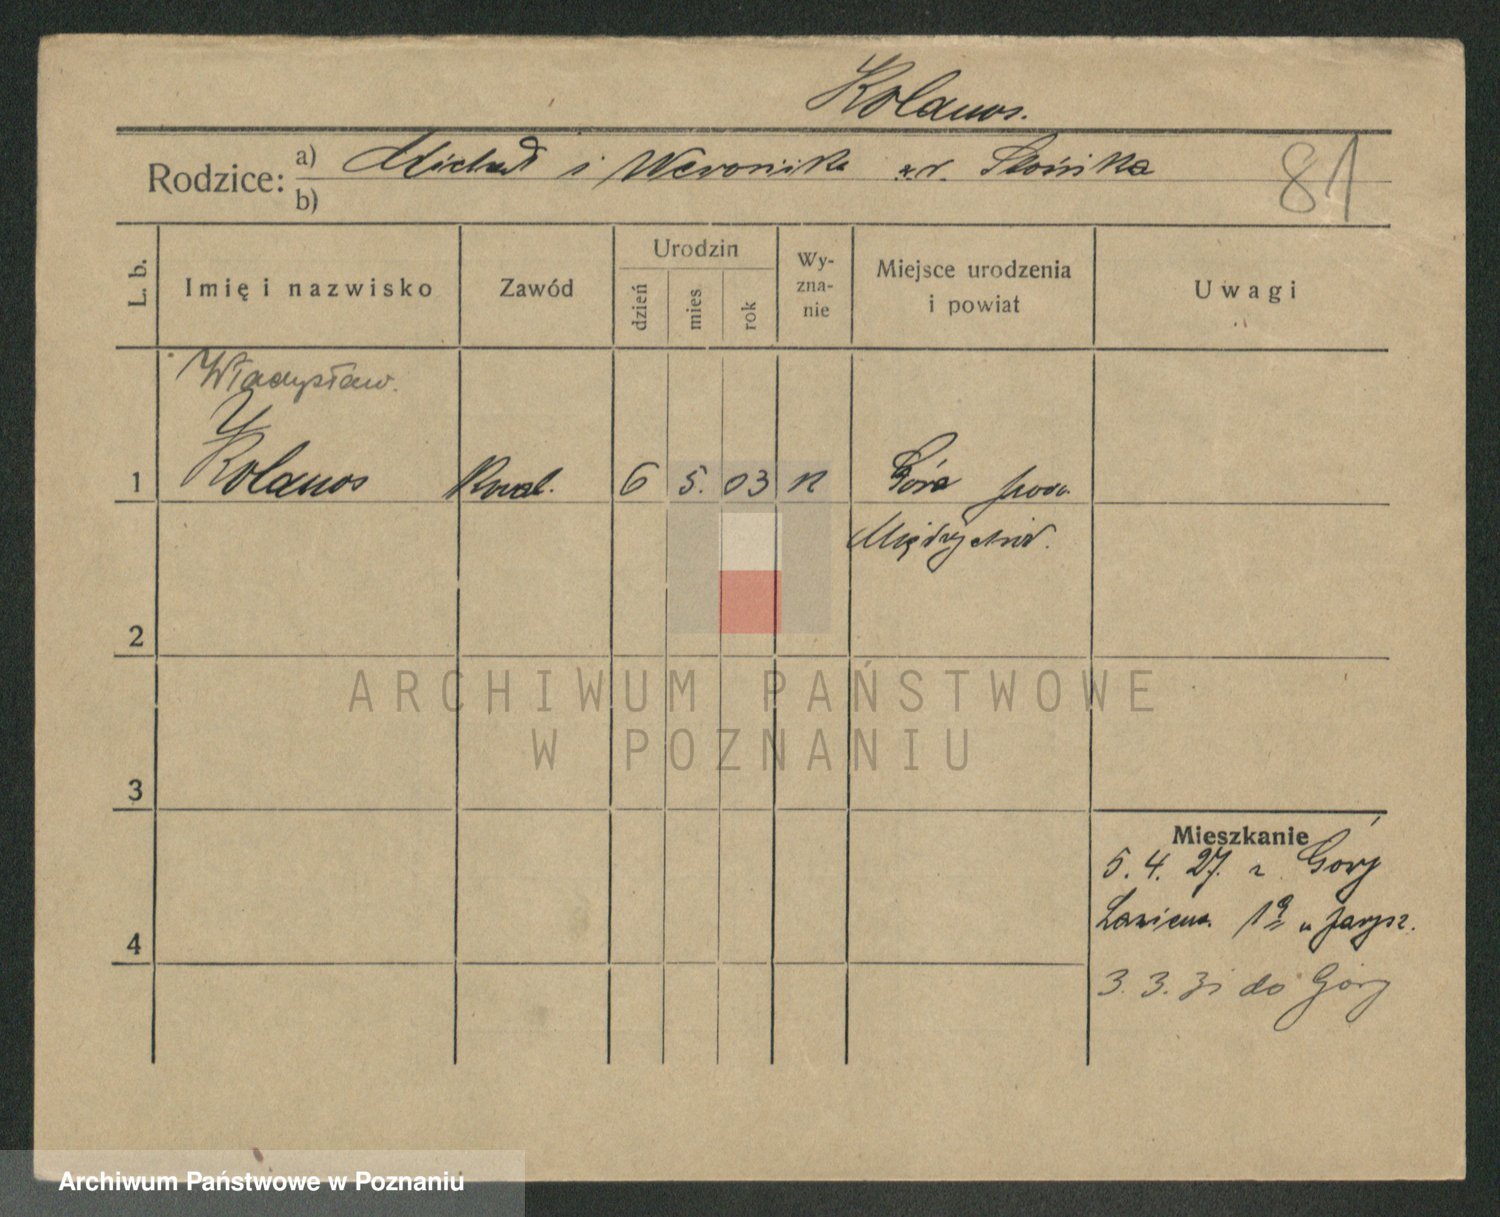 Kolanos.
Rodzice: a) Michał i Weronika ur. Słońska
b)
81
L. b.
Imię i nazwisko
Zawód
Urodzin
dzień
mies
rok
Wy-
zna-
nie
Miejsce urodzenia
i powiat
Uwagi
Władysław.
1 Kolanos Kowal. 6 5. 03 K Góra pow.
Międzychód.
2
ARCHIWUM PAŃSTWOWE
W POZNANIU
3
Mieszkanie
5. 4. 27. z Góry
4
3. 3. 31 do Góry
Archiwum Państwowe w Poznaniu